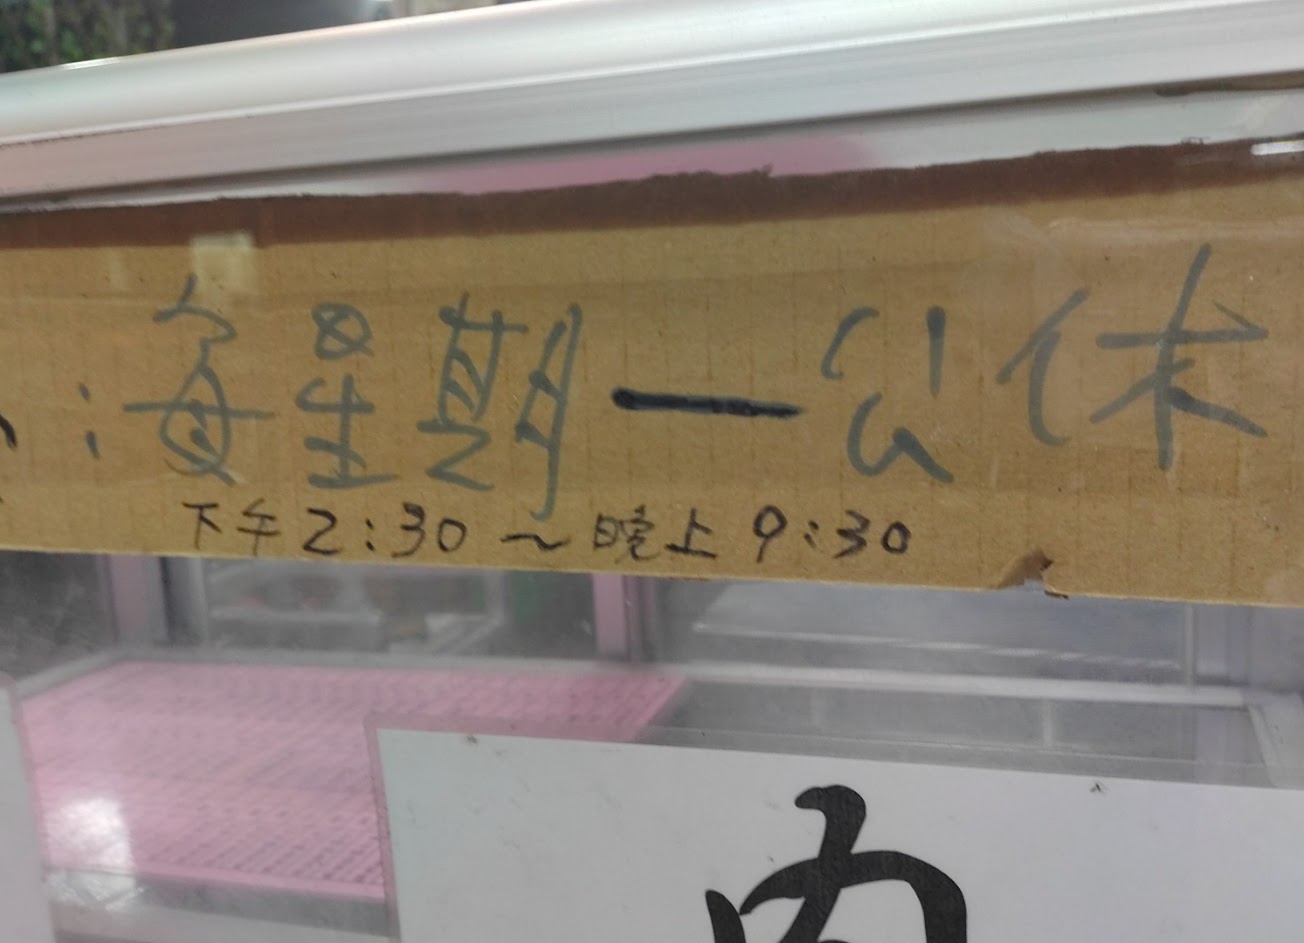 ：每星期一公休
下午2:30～晚上9:30
內